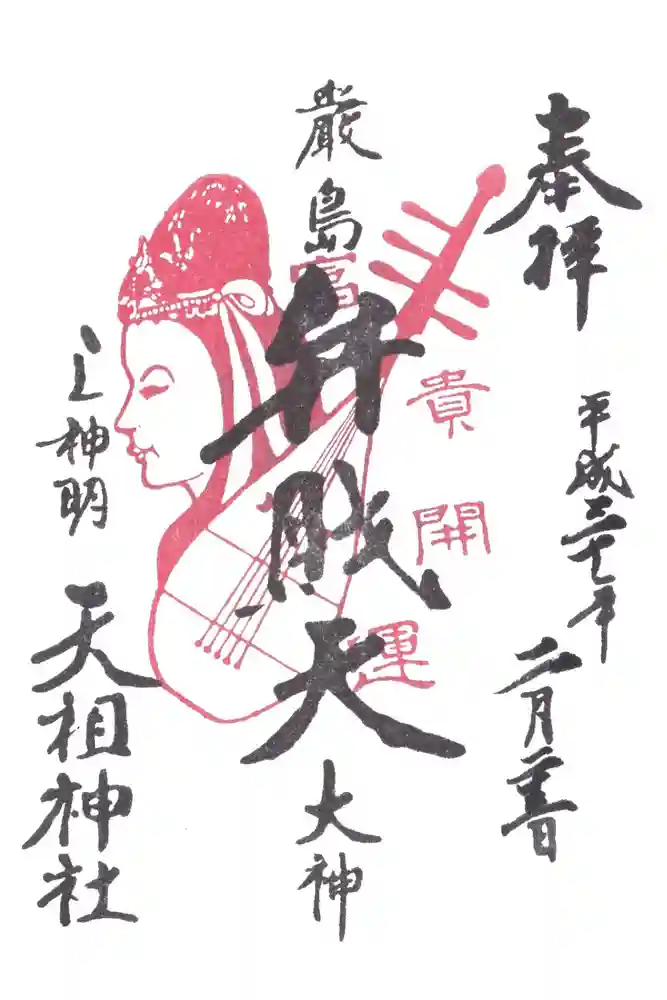 奉拝
平成二十七年
二月
厳島
弁財天
大神
富貴開運
上神明
天祖神社